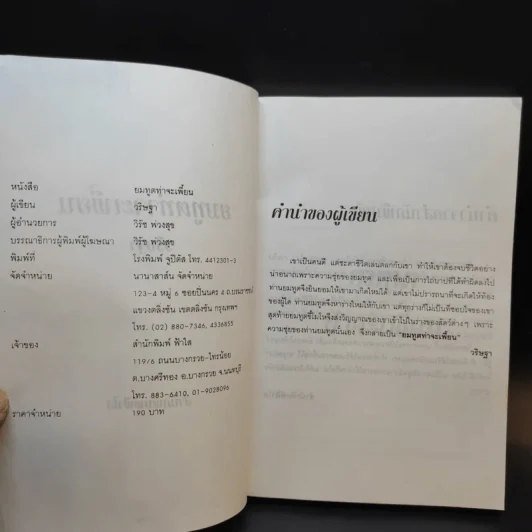 หนังสือ ยมทูตท่าจะเพี้ยน
ผู้เขียน วริษฐา
ผู้อำนวยการ วิรัช พ่วงสุข
บรรณาธิการผู้พิมพ์ผู้โฆษณา วิรัช พ่วงสุข
พิมพ์ที่ โรงพิมพ์ จูปิตัส โทร. 4412301-3
จัดจำหน่าย นานาสาส์น จัดจำหน่าย
123-4 หมู่ 6 ซอยปิ่นนคร 4 ถ.บรมราชช
แขวงตลิ่งชัน เขตตลิ่งชัน กรุงเทพฯ
โทร.(02) 880-7346, 4336855
เจ้าของ สำนักพิมพ์ ฟ้าใส
119/6 ถนนบางกรวย-ไทรน้อย
ต.บางศรีทอง อ.บางกรวย จ.นนทบุรี
โทร. 883-6410, 01-9028096
ราคาจำหน่าย 190 บาท
คำนำของผู้เขียน
เขาเป็นคนดี แต่ชะตาชีวิตเล่นตลกกับเขา ทำให้เขาต้องจบชีวิตอย่าง
น่าอนาถเพราะความชุ่ยของยมทูต และเพื่อเป็นการไถ่บาปที่ได้ทำผิดลงไป
ท่านยมทูตจึงยินยอมให้เขามาเกิดใหม่ได้ แต่เขาไม่ปรารถนาที่จะเกิดให้ท้อง
ของผู้ใด ท่านยมทูตจึงหาร่างใหม่ให้กับเขา แต่ทุกร่างก็ไม่เป็นที่ชอบใจของเขา
สุดท้ายยมทูตขี้โมโหจึงส่งวิญญาณของเขาเข้าไปในร่างของสัตว์ต่างๆ เพราะ
ความชุ่ยของท่านยมทูตนั่นเอง จึงกลายเป็น "ยมทูตท่าจะเพี้ยน"
วริษฐา